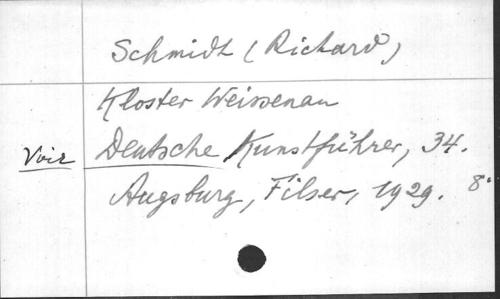 Schmidt (Richard)
Kloster Weissenau
Voir Deutsche Kunstführer, 34.
Augsburg, Filser, 1929. 8°